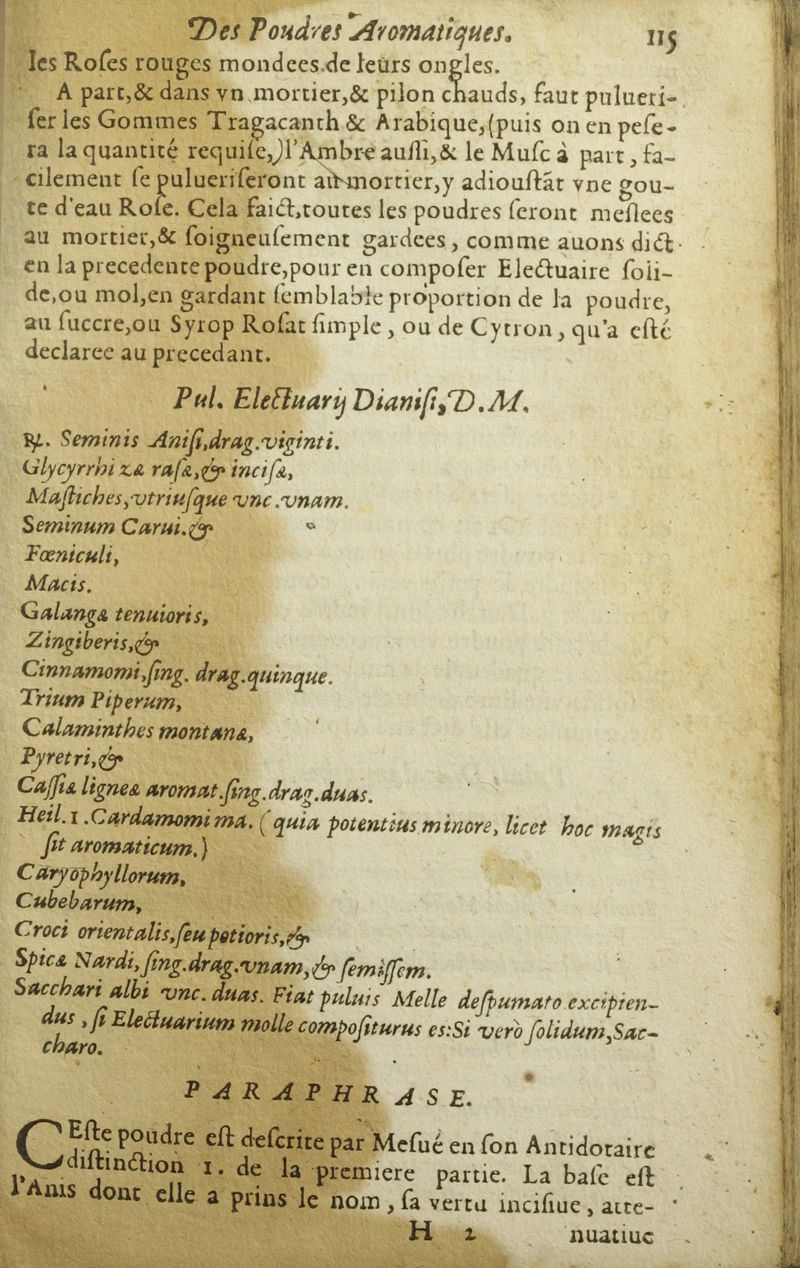 Des Poudres Aromatiques. 115
les Roſes rouges mondees.de leurs ongles.
A part,& dans vn mortier,& pilon chauds, faut pulueri-
ſer les Gommes Tragacanth & Arabique,(puis on en peſe-
ra la quantité requiſe,)l'Ambre auſſi,& le Muſc à part, fa-
cilement ſe pulueriſeront au mortier,y adiouſtāt vne gou-
te d'eau Roſe. Cela faict,toutes les poudres ſeront meſlees
au mortier,& ſoigneuſement gardees, comme auons dict
en la precedente poudre,pour en compoſer Electuaire ſoli-
de,ou mol,en gardant ſemblable proportion de la poudre,
au ſuccre,ou Syrop Roſat ſimple, ou de Cytron, qu'a eſté
declaree au precedant.
Pul. Electuarij Dianiſi,D.M.
℞. Seminis Aniſi,drag.viginti.
Glycyrrhizæ raſæ,& inciſæ,
Maſtiches,vtriuſque vnc.vnam.
Seminum Carui.&
Fœniculi,
Macis.
Galangæ tenuioris,
Zingiberis,&
Cinnamomi,ſing. drag.quinque.
Trium Piperum,
Calaminthes montanæ,
Pyretri,&
Caſſiæ ligneæ aromat.ſing.drag.duas.
Heil.1.Cardamomi ma. (quia potentius minore, licet hoc magis
ſit aromaticum.)
Caryophyllorum,
Cubebarum,
Croci orientalis,ſeu potioris,&
Spicæ Nardi,ſing.drag.vnam,& ſemiſſem.
Sacchari albi vnc. duas. Fiat puluis Melle deſpumato excipien-
dus, ſi Electuarium molle compoſiturus es:Si verò ſolidum,Sac-
charo.
PARAPHRASE.
CEſte poudre eſt deſcrite par Meſué en ſon Antidotaire
diſtinction 1. de la premiere partie. La baſe eſt
l'Anis dont elle a prins le nom, ſa vertu inciſiue, atte-
H 2 nuatiue